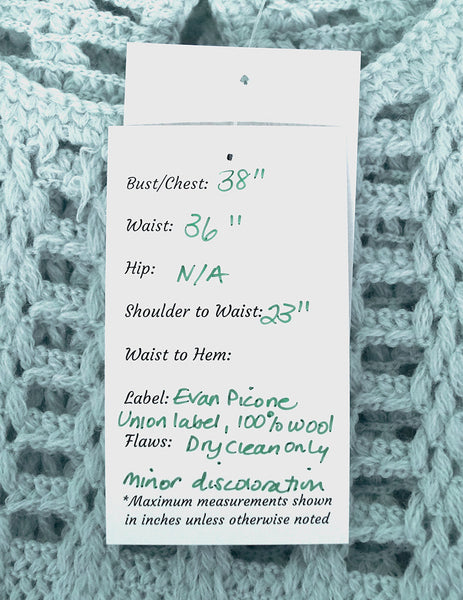 Bust/Chest: 38"
Waist: 36"
Hip: N/A
Shoulder to Waist: 23"
Waist to Hem:
Label: Evan Picone
Union label, 100% wool
Flaws: Dry Clean Only
minor discoloration
*Maximum measurements shown
in inches unless otherwise noted